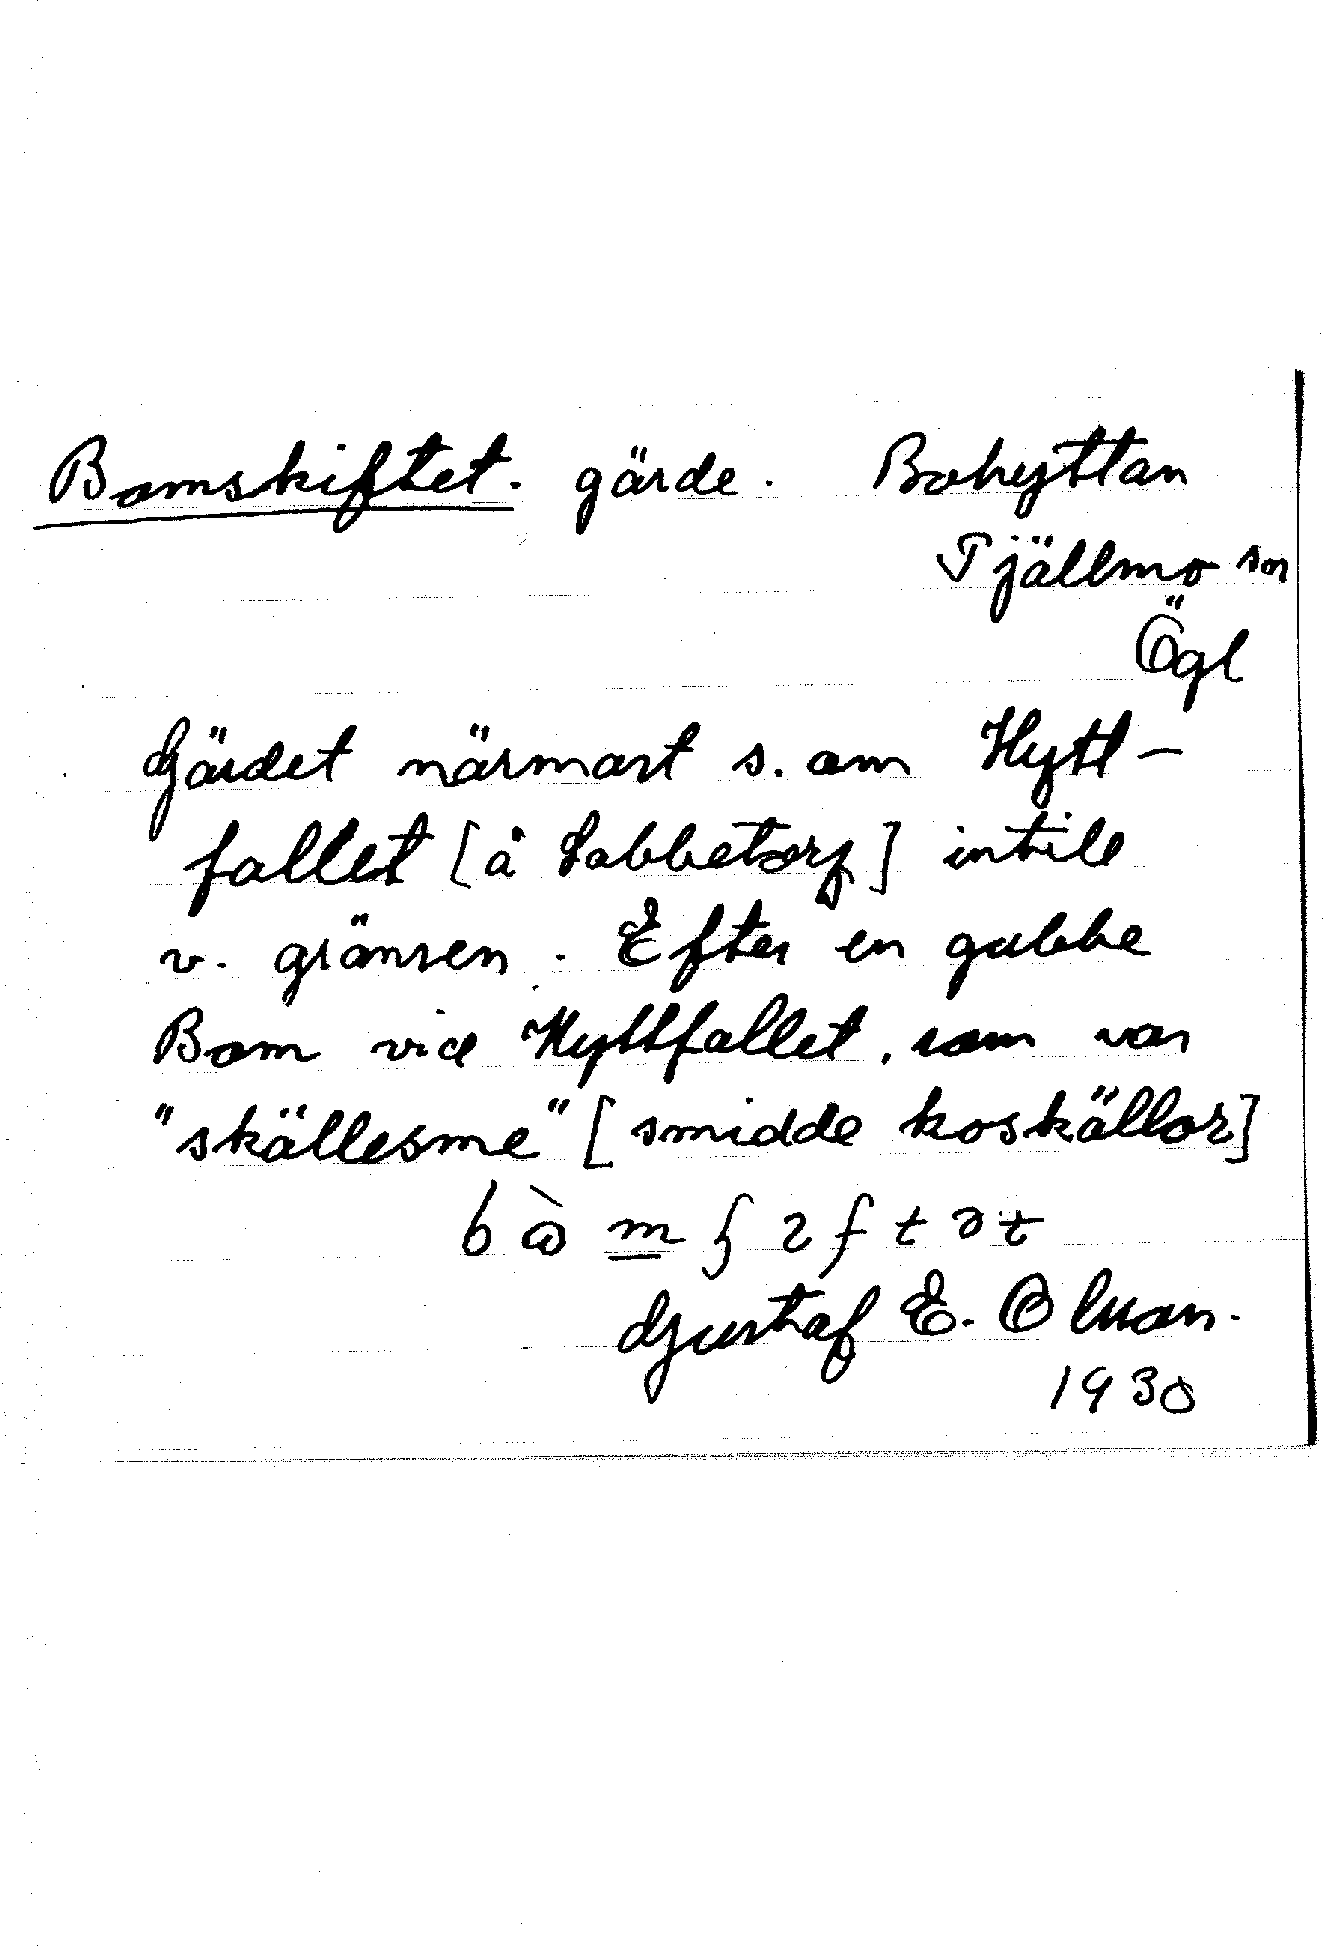 Bomskiftet. gärde. Bohyttan
Tjällmo sn
Ögl
Gärdet närmast s. om Hytt-
fallet [å Sabbetorp] intill
v. gränsen. Efter en gubbe
Bom vid Hyttfallet, som var
"skällesme" [smidde koskällor]
Gustaf E. Olsson.
1930